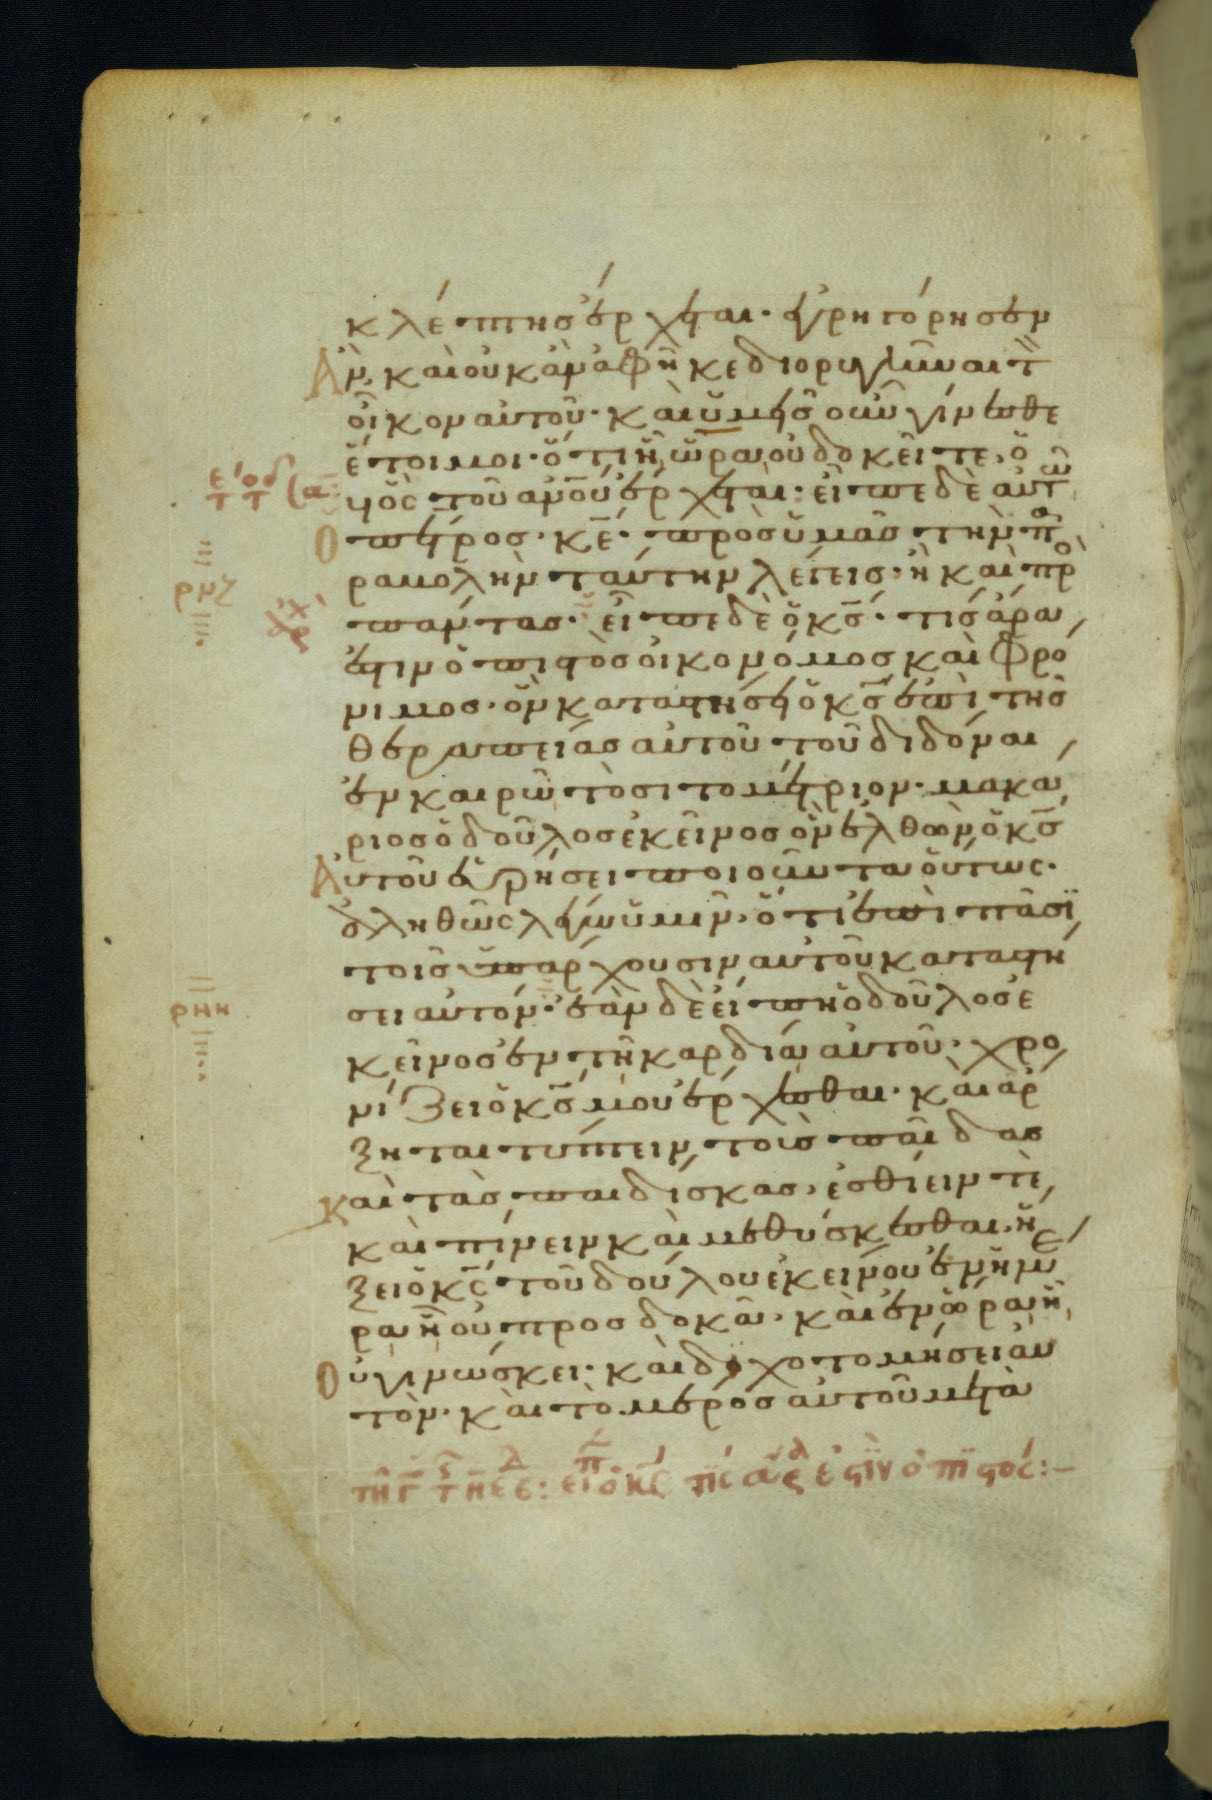 κλέπτης ἔρχεται· ἐγρηγόρησεν
ἂν, καὶ οὐκ ἂν ἀφῆκε διορυγῆναι τ
οἶκον αὐτοῦ· καὶ ὑμεῖς οὖν γίνεσθε
ἕτοιμοι· ὅτι ᾗ ὥρα οὐ δοκεῖτε, ὁ
υἱὸς τοῦ ἀνου ἔρχεται· εἶπε δὲ αὐτῶ
Ὁ πετρος· κε· πρὸς ὑμᾶς τὴν πα
ραβολὴν ταύτην λέγεις· ἢ καὶ πρὸ
πάντας· εἶπε δὲ ὁ κς· τίς ἄρα
ἐστιν ὁ πιστὸς οἰκονόμος καὶ φρο
νιμος· ὃν καταστήσει ὁ κς ἐπὶ τῆς
θεραπείας αὐτοῦ τοῦ διδόναι
ἐν καιρῶ τὸ σιτομέτριον· μακα
ριος ὁ δοῦλος ἐκεῖνος ὃν ἐλθὼν ὁ κς
Αὐτοῦ εὑρήσει ποιοῦντα οὕτως·
ἀληθῶς λέγω ὑμῖν, ὅτι ἐπὶ πᾶσι
τοῖς ὑπάρχουσιν αὐτοῦ καταστή
σει αὐτόν· ἐὰν δὲ εἴπη ὁ δοῦλος ἐ
κεῖνος ἐν τῆ καρδία αὐτοῦ· χρο
νίζει ὁ κς μου ἔρχεσθαι· καὶ ἄρ
ξηται τύπτειν τοὺς παῖδας
Καὶ τὰς παιδίσκας, ἐσθίειν τὲ
καὶ πίνειν καὶ μεθύσκεσθαι· ἥ
ξει ὁ κς τοῦ δούλου ἐκείνου ἐν ἡμέ
ρα ᾗ οὐ προσδοκᾶ· καὶ ἐν ὥρα ᾗ
Οὐ γινώσκει· καὶ διχοτομήσει αὐ
τὸν· καὶ τὸ μέρος αὐτοῦ μετὰ
ρμζ
ρμη